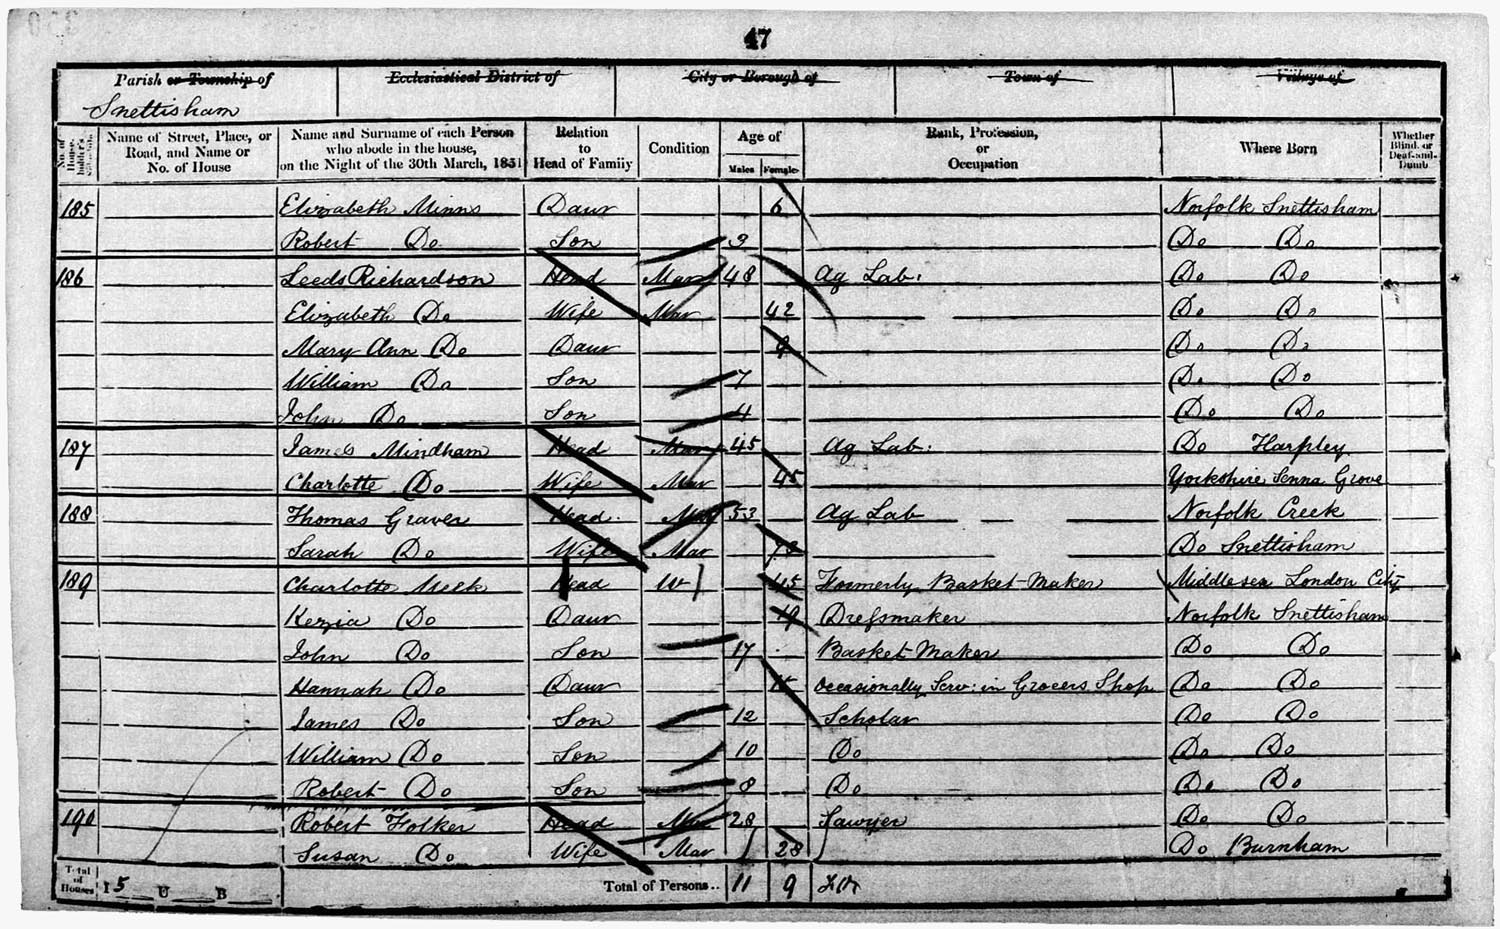 47
Parish or Township of Ecclesiastical District of City or Borough of Town of Village of
Snettisham
No. of House-holder's Schedule Name of Street, Place, or Road, and Name or No. of House Name and Surname of each Person who abode in the house, on the Night of the 30th March, 1851 Relation to Head of Family Condition Age of Males Females Rank, Profession, or Occupation Where Born Whether Blind, or Deaf-and-Dumb
185 Elizabeth Minns Daur 6 Norfolk Snettisham
Robert Do Son 3 Do Do
186 Leeds Richardson Head Mar 48 Ag Lab: Do Do
Elizabeth Do Wife Mar 42 Do Do
Mary Ann Do Daur 9 Do Do
William Do Son 7 Do Do
John Do Son 4 Do Do
187 James Mindham Head Mar 45 Ag Lab: Do Harpley
Charlotte Do Wife Mar 45 Yorkshire Senna Grove
188 Thomas Graver Head Mar 53 Ag Lab Norfolk Creek
Sarah Do Wife Mar Do Snettisham
189 Charlotte Meek Head W 45 Formerly Basket-Maker Middlesex London City
Kezia Do Daur 19 Drefsmaker Norfolk Snettisham
John Do Son 17 Basket-Maker Do Do
Hannah Do Daur Occasionally Serv: in Grocers Shop Do Do
James Do Son 12 Scholar Do Do
William Do Son 10 Do Do Do
Robert Do Son 8 Do Do Do
190 Robert Folker Head Mar 28 Sawyer Do Do
Susan Do Wife Mar 28 Do Burnham
Total of Houses I 5 U B Total of Persons.. 11 9